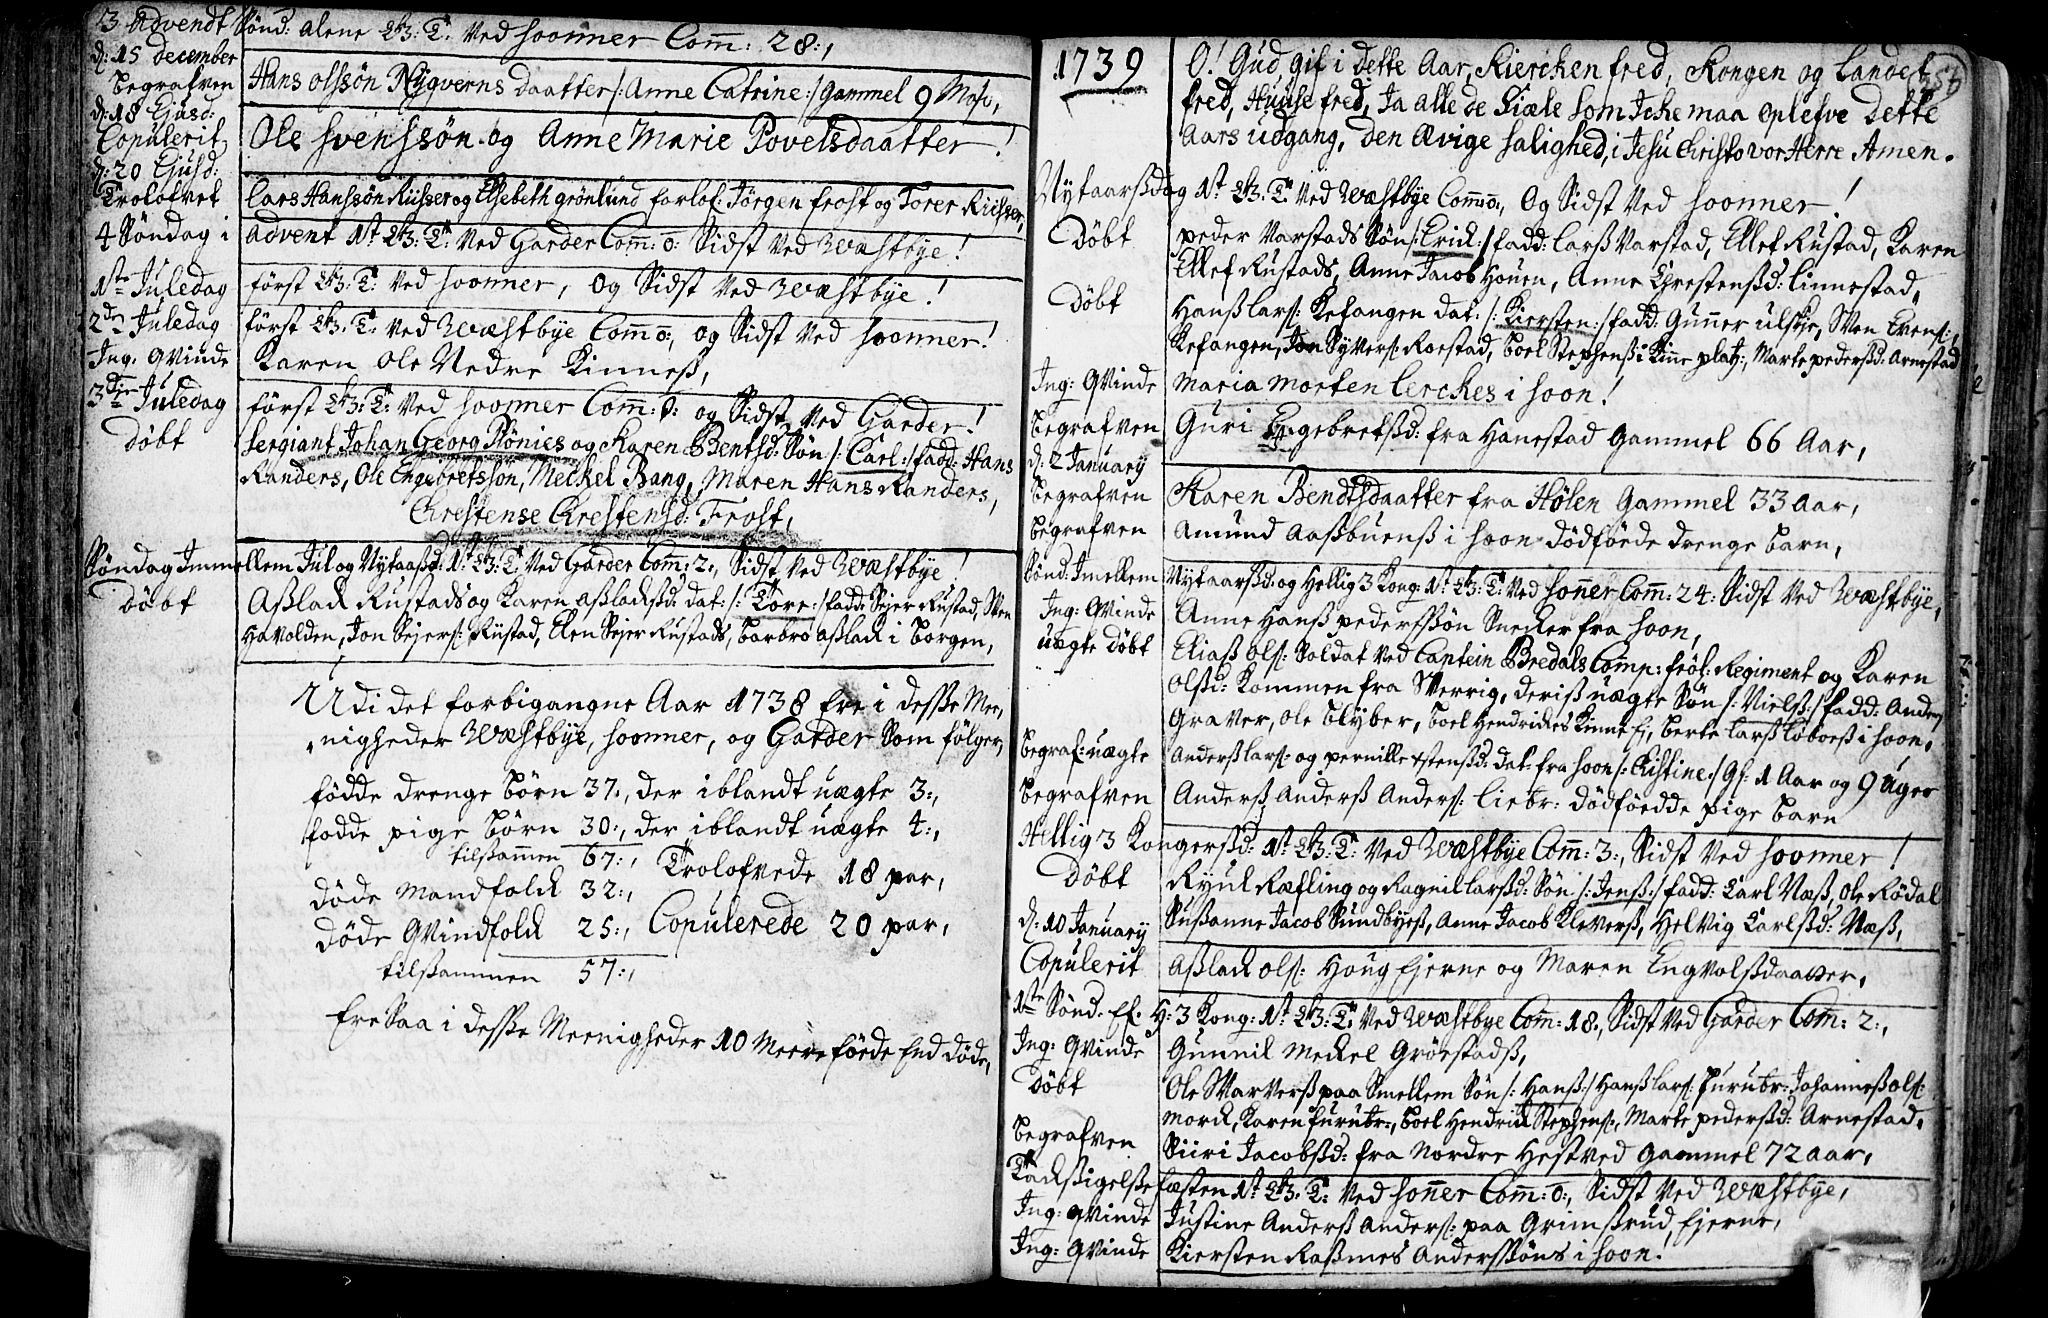 3 Advendt Sønd: alene Ph3: T: Ved Soonner Com: 28:,
d: 15 December
begrafven Hans olssøn Nygverns daatter /: Anne Catrine :/ gammel 9 Mofv,
d: 18 Ejusd:
Copulerit Ole Svenssøn og Anne Marie Povelsdaatter !
d: 20 Ejusd:
Trolofvet Lars Hanssøn Riisser og Elsebeth grønlund forlof: Jørgen frost og Torer Riisser,
4 Søndag i advent 1st Ph3: T: Ved Garder Com: 0: Sidst Ved Wæstbye !
1ste Juledag først Ph3: T: Ved Soonner, Og Sidst Ved Wæstbye !
2den Juledag først Ph3: T: Ved Wæstbye Com 0:, og Sidst Ved Soonner !
Ing: Qvinde Karen Ole Nedre Kinness,
3die Juledag først Ph3: T: Ved Soonner Com: 0: og Sidst Ved Garder !
Døbt Sergiant Johan Georg Nønies og Karen Bentsd: Søn /: Carl :/ fadd: Hans
Randers, Ole Engebretssøn, Meckel Bang, Maren Hans Randers,
Chrestense Chrestensd: Frost,
Søndag Immellem Jul og Nytaarsd: 1st Ph3: T: Ved Garder Com: 2:, Sidst Ved Wæstbye !
Døbt Asslack Rustads og Karen asslacksd: dat: /: Tore :/ fadd: Sejer Rustad, Sven
Havolden, Jon Sejers: Rustad, Elen Sejer Rustads, barbro asslack i borgen,
Udi det forbigangne Aar 1738 Ere i desse Mee-
nigheder Wæstbye, Soonner, og Garder Som følger,
födde drenge börn 37:, der iblandt uægte 3:,
födde pige börn 30:, der iblandt uægte 4:,
tilsammen 67:, Trolofvede 18 par,
döde Mandfolck 32:,
döde Qvindfolck 25:, Copulerede 20 par,
tilsammen 57:,
Ere Saa i desse Meenigheder 10 Meere föede End döde,
1739 O! Gud gif i dette Aar, Kiercken fred, Kongen og Landet
fred, Huuse fred, Ja alle de Siæle som Icke maa oplefve dette
aars udgang, den Ævige Salighed, i Jesu Christo vor Herre Amen.
Nytaarssdag 1st Ph3: T: Ved Wæstbye Com: 0:, Og Sidst Ved Soonner !
Døbt peder Varstads Søn /: Erick :/ fadd: Larss Varstad, Ellef Rustad, Karen
Ellef Rustads, Anne Jacob Houen, Anne Chrestenssd: Linnestad,
Døbt Hanss Lars: Kefangen dat: /: Kiersten :/ fadd: Gunner ulskye, Sven Evens:,
Kefangen, Jon Syvers: Roestad, boel Stephenss i Kinne platz:, Marte pederssd: Arnestad
Ing: Qvinde Maria Morten Lerckes i Soon !
begrafven Guri Engebretssd: fra Hanestad gammel 66 Aar,
d: 2 January
begrafven Karen Bendtsdaatter fra Hølen gammel 33 aar,
begrafven Amund Aassbuenss i Soon dödföede drenge barn,
Sønd: Imellem Nytaarssd: og Hellig 3 Kong: 1st Ph3: T: Ved Sonner Com: 24: Sidst Ved Wæstbye,
Ing: Qvinde Anne Hanss pederssøn Snecker fra Soon,
uægte Døbt Eliass ols: Soldat Ved Captein Bredals Comp: fröl: Regiment og Karen
olssd: kommen fra Sverrig, deriss uægte Søn /: Nielss :/ fadd: Anders
Graver, Ole blyber, boel Hendrickes Kinne Ej, berte Larss Loboess i Soon,
begraf: uægte Anderss Lars: og pernille ostenssd: dat: fra Soon /: Christine :/ gl: 1 Aar og 9 uger
begrafven Anderss Anderss Anders: Liebr: dödföedde pige barn
Hellig 3 Kongerssd: 1st Ph3: T: Ved Wæstbye Com: 3:, Sidst Ved Soonner !
Døbt Ryul Ræfling og Ragnil Larssd: Søn /: Jenss :/ fadd: Carl Næss, Ole Rödal
Sussanne Jacob Sundbyess, Anne Jacob Kleverss, Helvig Carlssd: Næss,
d: 10 January
Copulerit Asslack ols: Houg Ejerne og Maren Engvolssdaatter,
1ste Sønd. Ef: H: 3 Kong: 1st Ph3: T: Ved Wæstbye Com: 18:, Sidst Ved Garder Com: 2:,
Ing: Qvinde Gunnil Meckel Gröestadss,
Døbt Ole Svarverss paa Smellem Søn /: Hanss :/ Hanss Lars: furubr: Johanness ols:
Morck, Karen furubr:, boel Hendrick Stephens:, Marte pederssd: Arnestad,
begrafven Siiri Jacobssd: fra Nordre Hestved gammel 72 aar,
Tackssigelsse festen 1st Ph3: T: Ved Sonner Com: 0:, Sidst Ved Wæstbye,
Ing: Qvinde Justine Anderss Anders: paa Grimssrud Ejerne,
Ing: Qvinde Kiersten Rassmes Anderssøns i Soon.